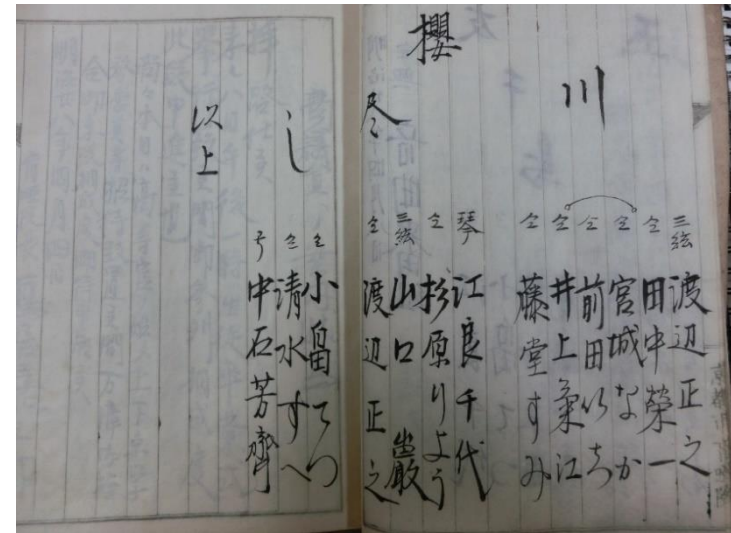 川
三絃 渡辺正之
仝 田中榮一
仝 宮城なか
仝 前田いち
仝 井上氣江
仝 藤堂すみ
櫻尽し
琴 江良千代
仝 杉原りよう
三絃 山口巖
仝 渡辺正之
仝 小畠てつ
仝 清水すへ
弓 中石芳齊
以上